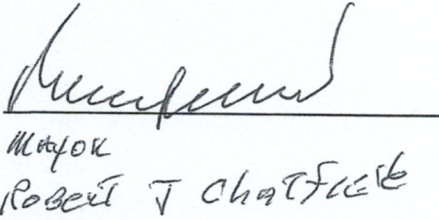 Mayor
Robert J Chatfield